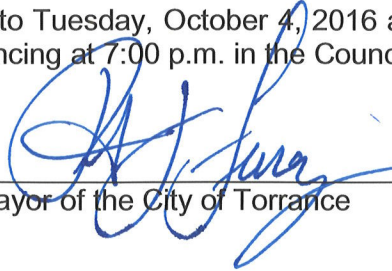 to Tuesday, October 4, 2016 a
ncing at 7:00 p.m. in the Counc
ayor of the City of Torrance